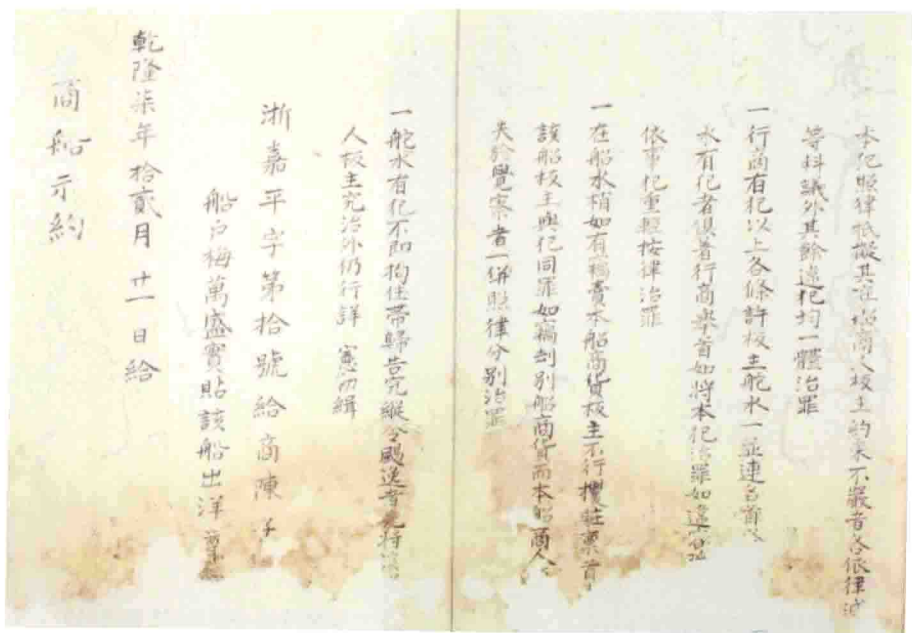 本犯照律抵擬其在船商人板主約束不嚴者各依律減
等科議外其餘違犯均一體治罪
一行商有犯以上各條許板主舵水一並連名首
水有犯者俱着行商舉首如將本犯治罪如違容
依事犯重輕按律治罪
一在船水梢如有竊賣本船商貨板主不行攔註稟首
該船板主與犯同罪如竊刮別船商貨而本船商人
失於覺察者一併照律分別治罪
一舵水有犯不即拘住帶歸告究縱令颺逃者先將
人板主究治外仍行詳 憲勒緝
浙嘉平字第拾號給商陳
船户梅萬盛實貼該船出洋
乾隆柒年拾貳月廿一日給
商船示約